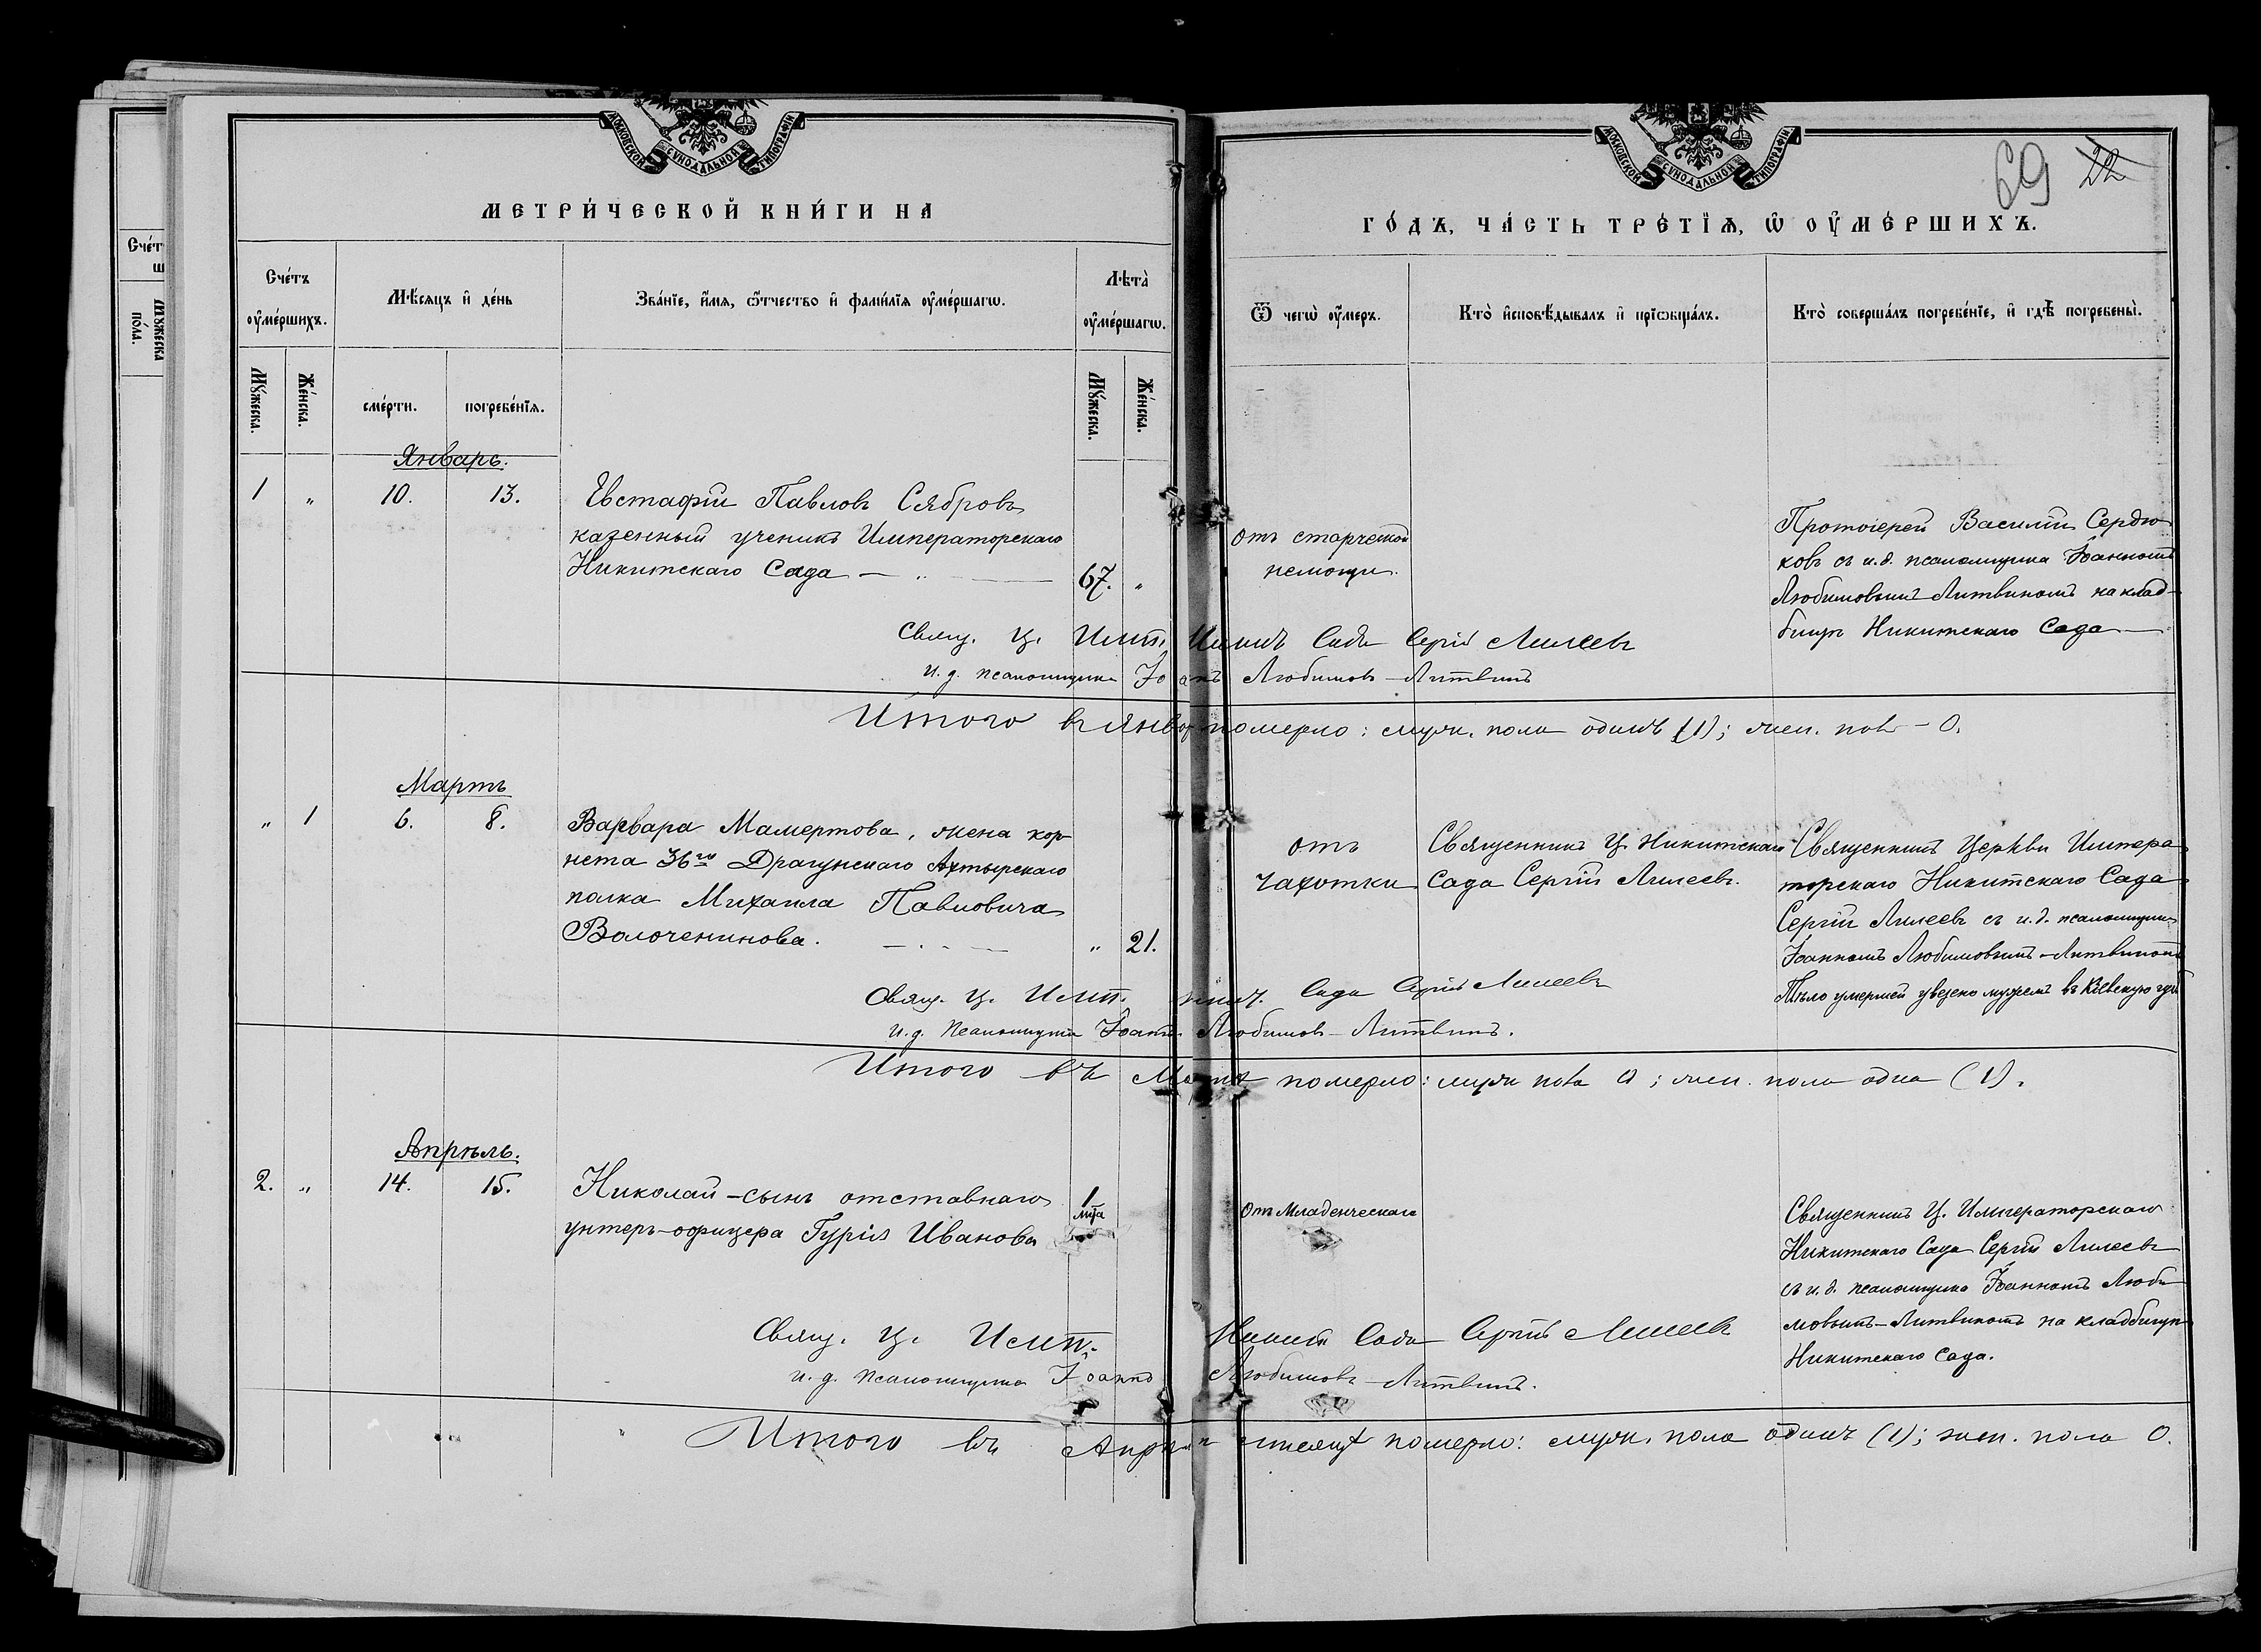 МОСКОВСКОЙ СѴНОДАЛЬНОЙ ТИПОГРАФІИ
МОСКОВСКОЙ СѴНОДАЛЬНОЙ ТИПОГРАФІИ
69 22
МЕТРИ́ЧЕСКОЙ КНИ́ГИ НА
ГО́ДЪ, ЧА́СТЬ ТРЕ́ТІѦ, Ѡ ОУ҆МЕ́РШИХЪ.
Сче́тъ
оу҆ме́ршихъ.
Мѣ́сѧцъ и҆ де́нь
Зва́нїе, и҆́мѧ, ѻ҆́тчество и҆ фами́лїѧ оу҆ме́ршагѡ.
Лѣта̀
оу҆ме́ршагѡ.
Ѿ чегѡ̀ оу҆́меръ.
Кто̀ и҆сповѣ́дывалъ и҆ прїѡбща́лъ.
Кто̀ соверша́лъ погребе́нїе, и҆ гдѣ̀ погребены̀.
Мꙋ́жеска.
Же́нска.
сме́рти.
погребе́нїѧ.
Мꙋ́жеска.
Же́нска.
Январь.
1 „ 10. 13. Евстафій Павловъ Сябровъ
казенный ученикъ Императорскаго
Никитскаго Сада — „ — 67. „
отъ старческой
немощи.
Протоіерей Василій Сердю
ковъ съ и.д. псаломщика Іоанномъ
Любимовымъ-Литвиномъ на клад-
бищѣ Никитскаго Сада —
Свящ. ц. Имп. Никит. Сада Сергій Лилеевъ
и. д. псаломщика Іоаннъ Любимовъ-Литвинъ
Итого въ янв. померло: муж. пола одинъ (1); жен. пола – 0.
Мартъ
„ 1 6. 8. Варвара Мамертова, жена кор-
нета 36го Драгунскаго Ахтырскаго
полка Михаила Павловича
Волоченинова. „ 21.
отъ
чахотки
Священникъ Ц. Никитскаго
Сада Сергій Лилеевъ.
Священникъ Церкви Импера
торскаго Никитскаго Сада
Сергій Лилеевъ съ и.д. псаломщика
Іоанномъ Любимовымъ-Литвиномъ
Тѣло умершей увезено мужемъ въ Кіевскую губ
Свящ. ц. Имп. Никит. Сада Сергій Лилеевъ
и. д. псаломщика Іоаннъ Любимовъ-Литвинъ.
Итого въ Мартѣ померло: муж. пола 0; жен. пола одна (1).
Апрѣль.
2. „ 14. 15. Николай – сынъ отставнаго
унтеръ-офицера Гурія Иванова
1
лѣта
Отъ младенческаго
Священникъ Ц. Императорскаго
Никитскаго Сада Сергій Лилеевъ
съ и.д. псаломщика Іоанномъ Люби
мовымъ-Литвиномъ на кладбищѣ
Никитскаго Сада.
Свящ. ц. Имп. Никит. Сада Сергій Лилеевъ
и. д. псаломщика Іоаннъ Любимовъ-Литвинъ.
Итого въ Апрѣлѣ мѣсяцѣ померло: муж. пола одинъ (1); жен. пола 0.